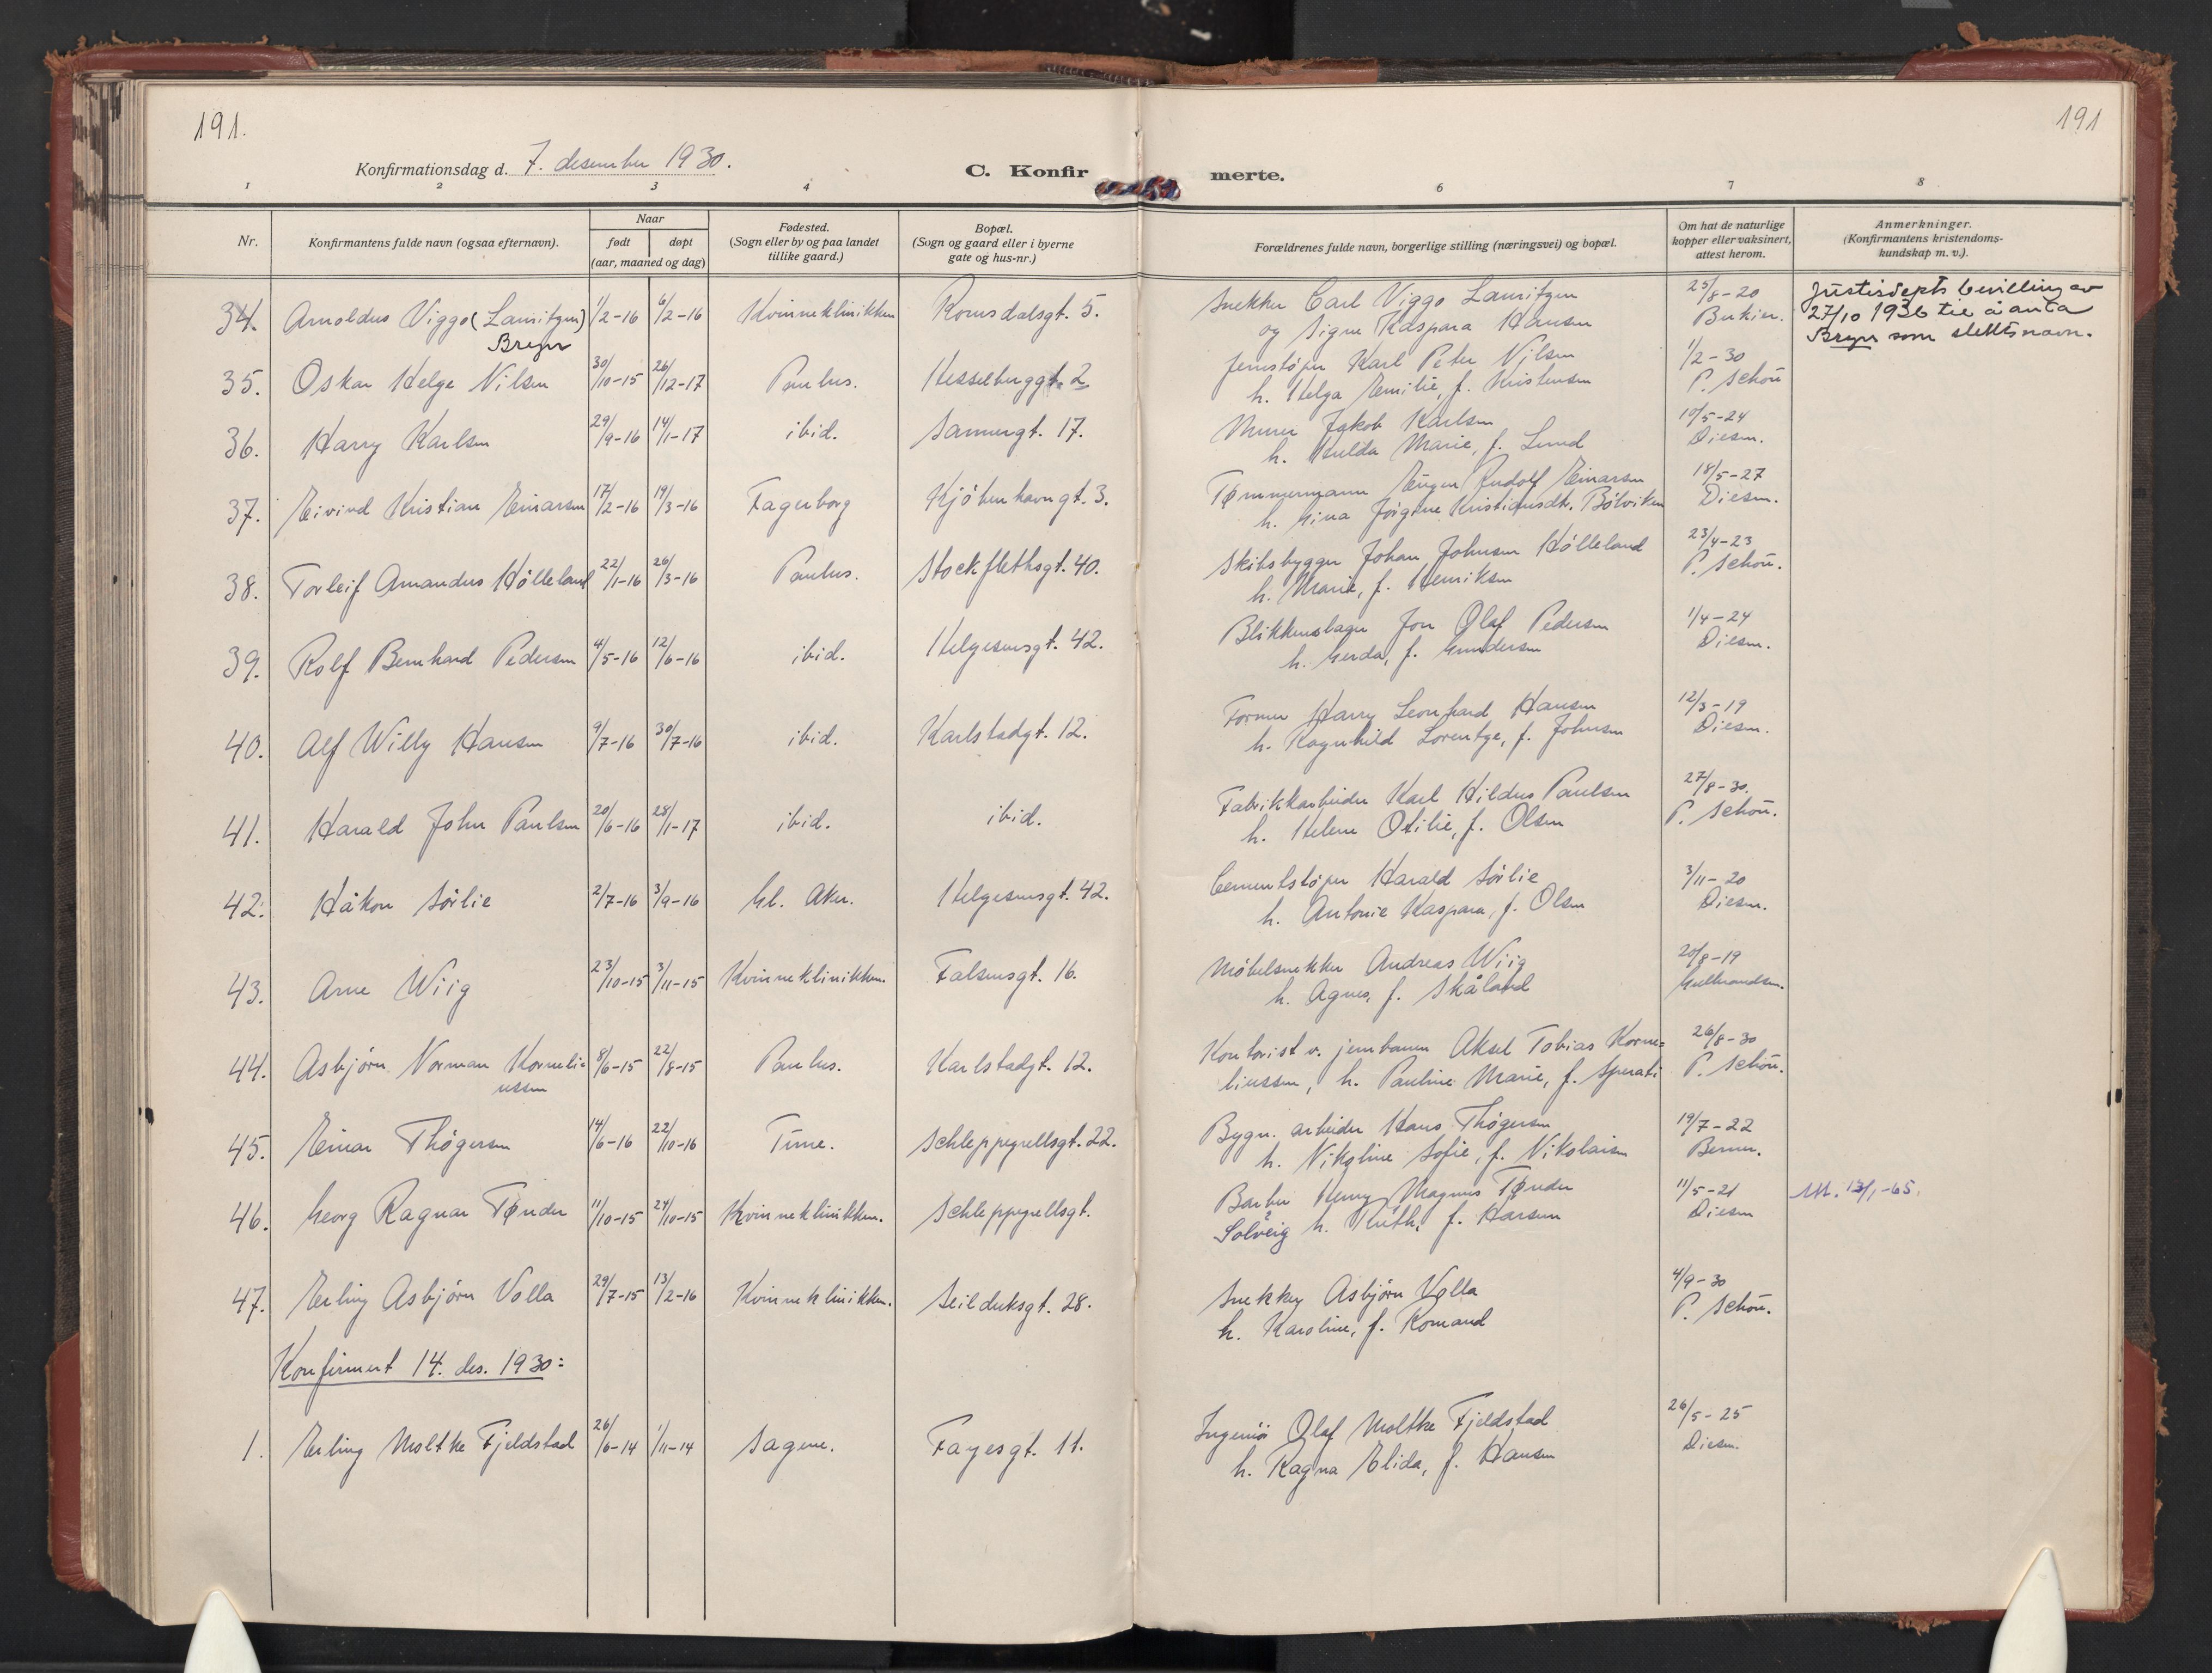 191.
191
Konfirmationsdag d. 7. desember 1930.
C. Konfir
merte.
1 2 3 4 6 7 8
Nr.
Konfirmantens fulde navn (ogsaa efternavn).
Naar
født
døpt
(aar, maaned og dag)
Fødested.
(Sogn eller by og paa landet
tillike gaard.)
Bopæl.
(Sogn og gaard eller i byerne
gate og hus-nr.)
Forældrenes fulde navn, borgerlige stilling (næringsvei) og bopæl.
Om hat de naturlige
kopper eller vaksinert,
attest herom.
Anmerkninger.
(Konfirmantens kristendoms-
kundskap m. v.).
34. Arnoldus Viggo (Lauritzen) 1/2-16 6/2-16 Kvinneklinikken Romsdalsgt. 5.
Bryn
Snekker Carl Viggo Lauritzen 25/8-20
og Signe Kaspara Hansen
Justisdepts bevilling av
27/10 1936 til å anta
Bryn som slektsnavn.
35. Oskar Helge Nilsen 30/10-15 26/12-17 Paulus. Hesselberggt. 2
Jernstøper Karl Peter Nilsen 1/2-30
h. Helga Emilie, f. Kristensen P. Schou
36. Harry Karlsen 29/9-16 14/1-17 ibid. Sannergt. 17.
Murer Jakob Karlsen 10/5-24
h. Hulda Marie, f. Lund Diesen.
37. Eivind Kristian Einarsen 17/2-16 19/3-16 Fagerborg Kjöbenhavngt. 3.
Tømmermann Eugen Rudolf Einarsen 18/5-27
h. Gina Jørgine Kristiansdtr. Bölviken Diesen.
38. Torleif Amandus Hölleland 22/1-16 26/3-16 Paulus. Stockflethsgt. 40.
Skibsbygger Johan Johnsen Hölleland 23/4-23
h. Marie, f. Henriksen P. Schou.
39. Rolf Bernhard Pedersen 4/5-16 12/6-16 ibid. Helgesensgt. 42.
Blikkenslager Jon Olaf Pedersen 1/4-24
h. Gerda, f. Gundersen Diesen.
40. Alf Willy Hansen 9/7-16 30/7-16 ibid. Karlstadgt. 12.
Former Harry Leonhard Hansen 12/3-19
h. Ragnhild Lorentze, f. Johnsen Diesen.
41. Harald John Paulsen 20/6-16 28/1-17 ibid. ibid.
Fabrikkarbeider Karl Hildus Paulsen 27/8-30.
h. Helene Otilie, f. Olsen P. Schou.
42. Håkon Sörlie 2/7-16 3/9-16 Gl. Aker. Helgesensgt. 42.
Cementstöper Harald Sörlie 3/11-20
h. Antonie Kaspara, f. Olsen Diesen.
43. Arne Wiig 23/10-15 3/11-15 Kvinneklinikken. Falsensgt. 16.
Möbelsnekker Andreas Wiig 20/8-19
h. Agnes, f. Skåland Gulbrandsen.
44. Asbjörn Norman Korneli= 8/6-15 22/8-15 Paulus. Karlstadgt. 12.
ussen
Kontorist v. jernbanen Aksel Tobias Korne= 26/8-30
liussen, h. Pauline Marie, f. Sperati P. Schou.
45. Einar Thögersen 14/6-16 22/10-16 Time. Schleppegrellsgt. 22.
Bygn. arbeider Hans Thögersen 19/7-22
h. Nikoline Sofie, f. Nikolaisen Berner.
46. Georg Ragnar Tønder 11/10-15 24/10-15 Kvinneklinikken. Schleppegrellsgt.
Barber Henry Magnus Tønder 11/5-21 Utt. 13/1-65.
Solveig h. Ruth, f. Hansen Diesen
47. Erling Asbjörn Volla 29/7-15 13/2-16 Kvinneklinikken. Seilduksgt. 28.
Snekker Asbjörn Volla 4/9-30
h. Karoline, f. Romand P. Schou.
Konfirmert 14. des. 1930:
1. Erling Moltke Fjeldstad 26/6-14 1/11-14 Sagene. Fayesgt. 11.
Ingeniör Olaf Moltke Fjeldstad 26/5-25
h. Ragna Elida, f. Hansen Diesen.